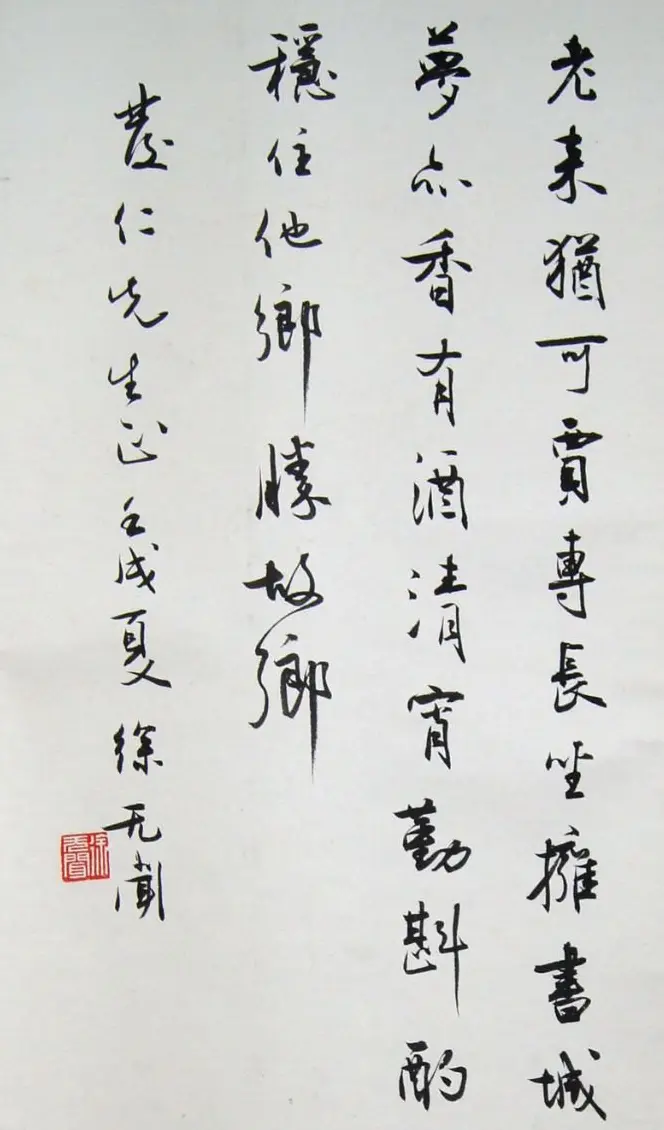 老来猶可賈專長坐擁書城
夢亦香有酒清宵勤斟酌
穩住他鄉勝故鄉
農仁先生正壬戌夏徐无聞
徐无聞